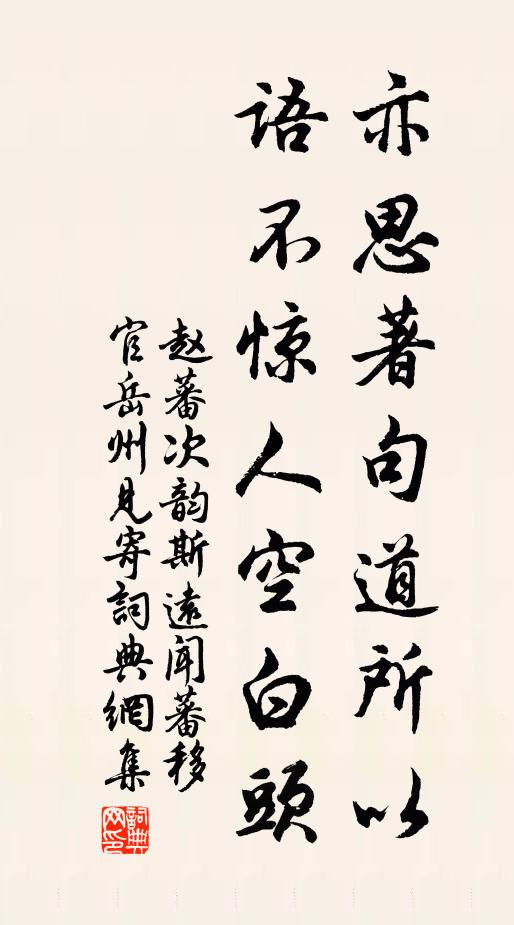 亦思著句道所以
语不惊人空白頭
赵蕃次韵斯遠闻蕃移
官岳州見寄詞典網集
詞典网印